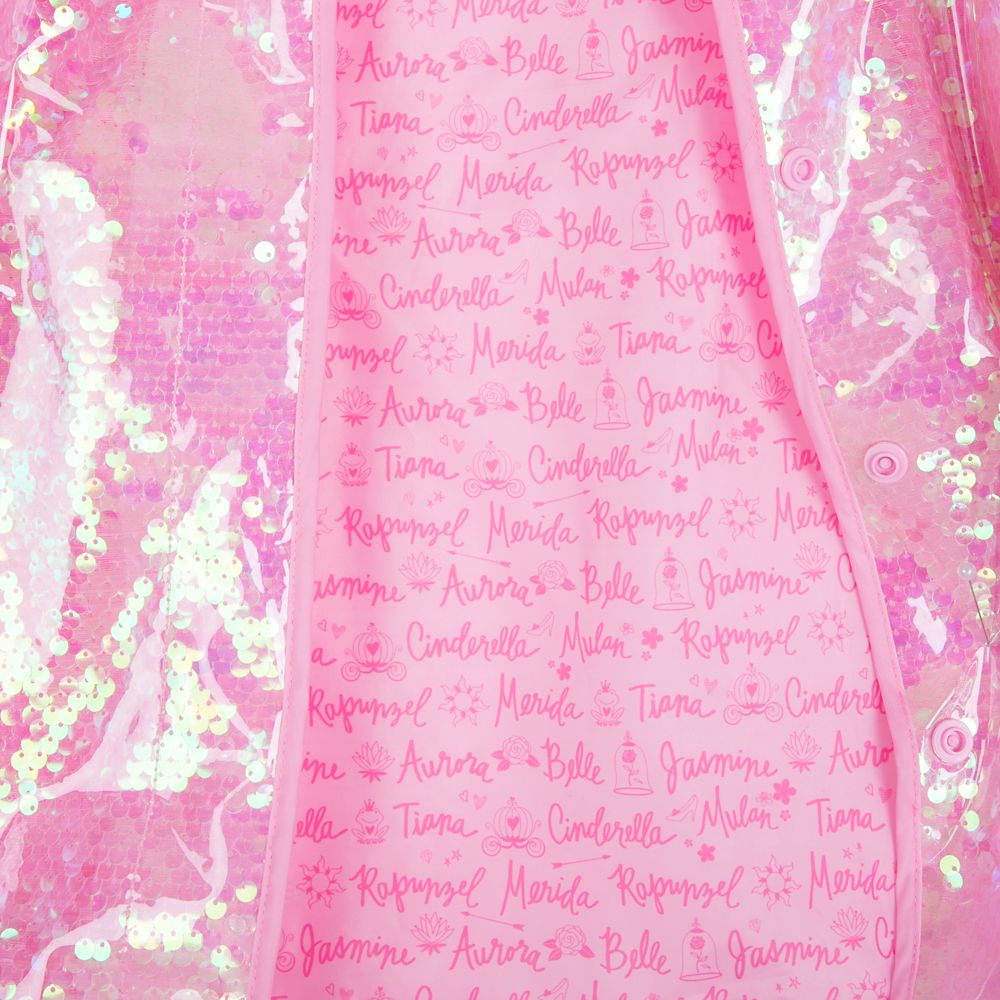 nzel Merida
Aurora Belle Jasmine
Tiana Cinderella Mulan
apunzel Merida Rapunzel
ine Aurora Belle Jasmi
Cinderella Mulan Rapunzel
punzel Merida Tiana Ci
Aurora Belle Jasmine
Tiana Cinderella Mulan Tian
Rapunzel Merida Rapunzel Merida
asmine Aurora Belle Jasmine C
a Cinderella Mulan Rapunzel
Rapunzel Merida Tiana Cinderella
ine Aurora Belle Jasmine Auro
ella Tiana Cinderella Mulan Tiana
Rapunzel Merida Rapunzel Merida
Jasmine Aurora Belle Jasmine Ci